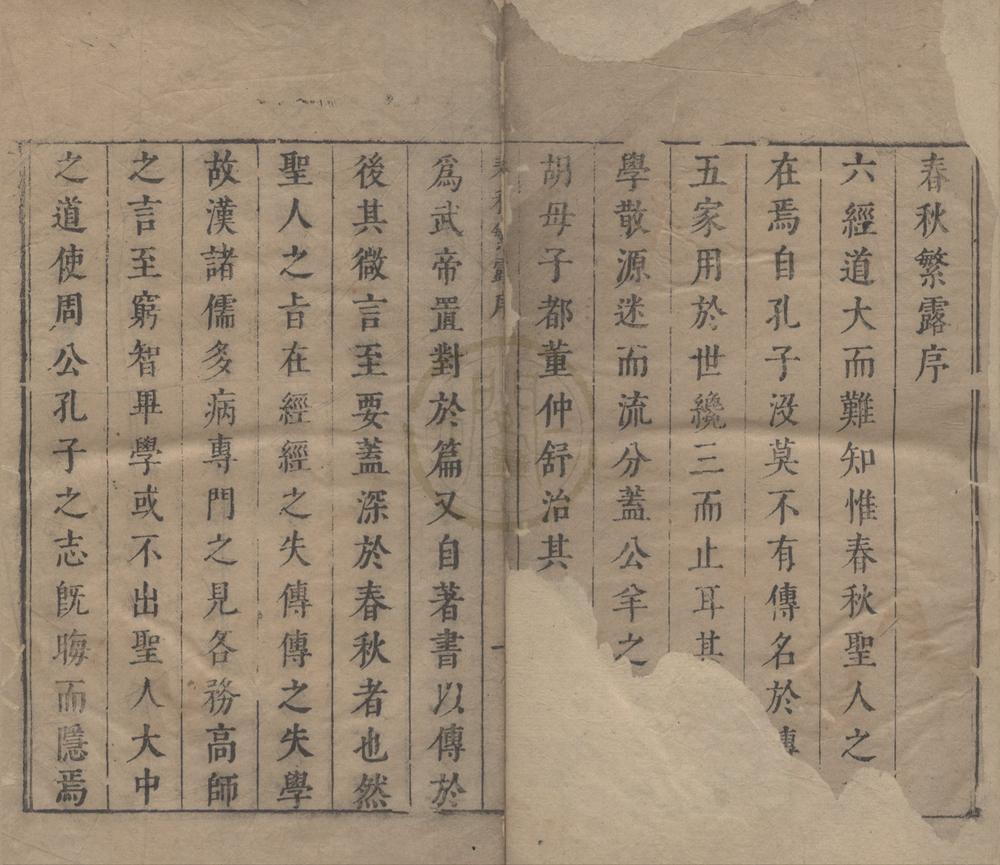 春秋繁露序
六經道大而難知惟春秋聖人之
在焉自孔子沒莫不有傳名於傳
五家用於世纔三而止耳其
學散源迷而流分蓋公羊之
胡母子都董仲舒治其
春秋繁露序 一
爲武帝置對於篇又自著書以傳於
後其微言至要蓋深於春秋者也然
聖人之旨在經經之失傳傳之失學
故漢諸儒多病專門之見各務高師
之言至窮智畢學或不出聖人大中
之道使周公孔子之志旣晦而隱焉